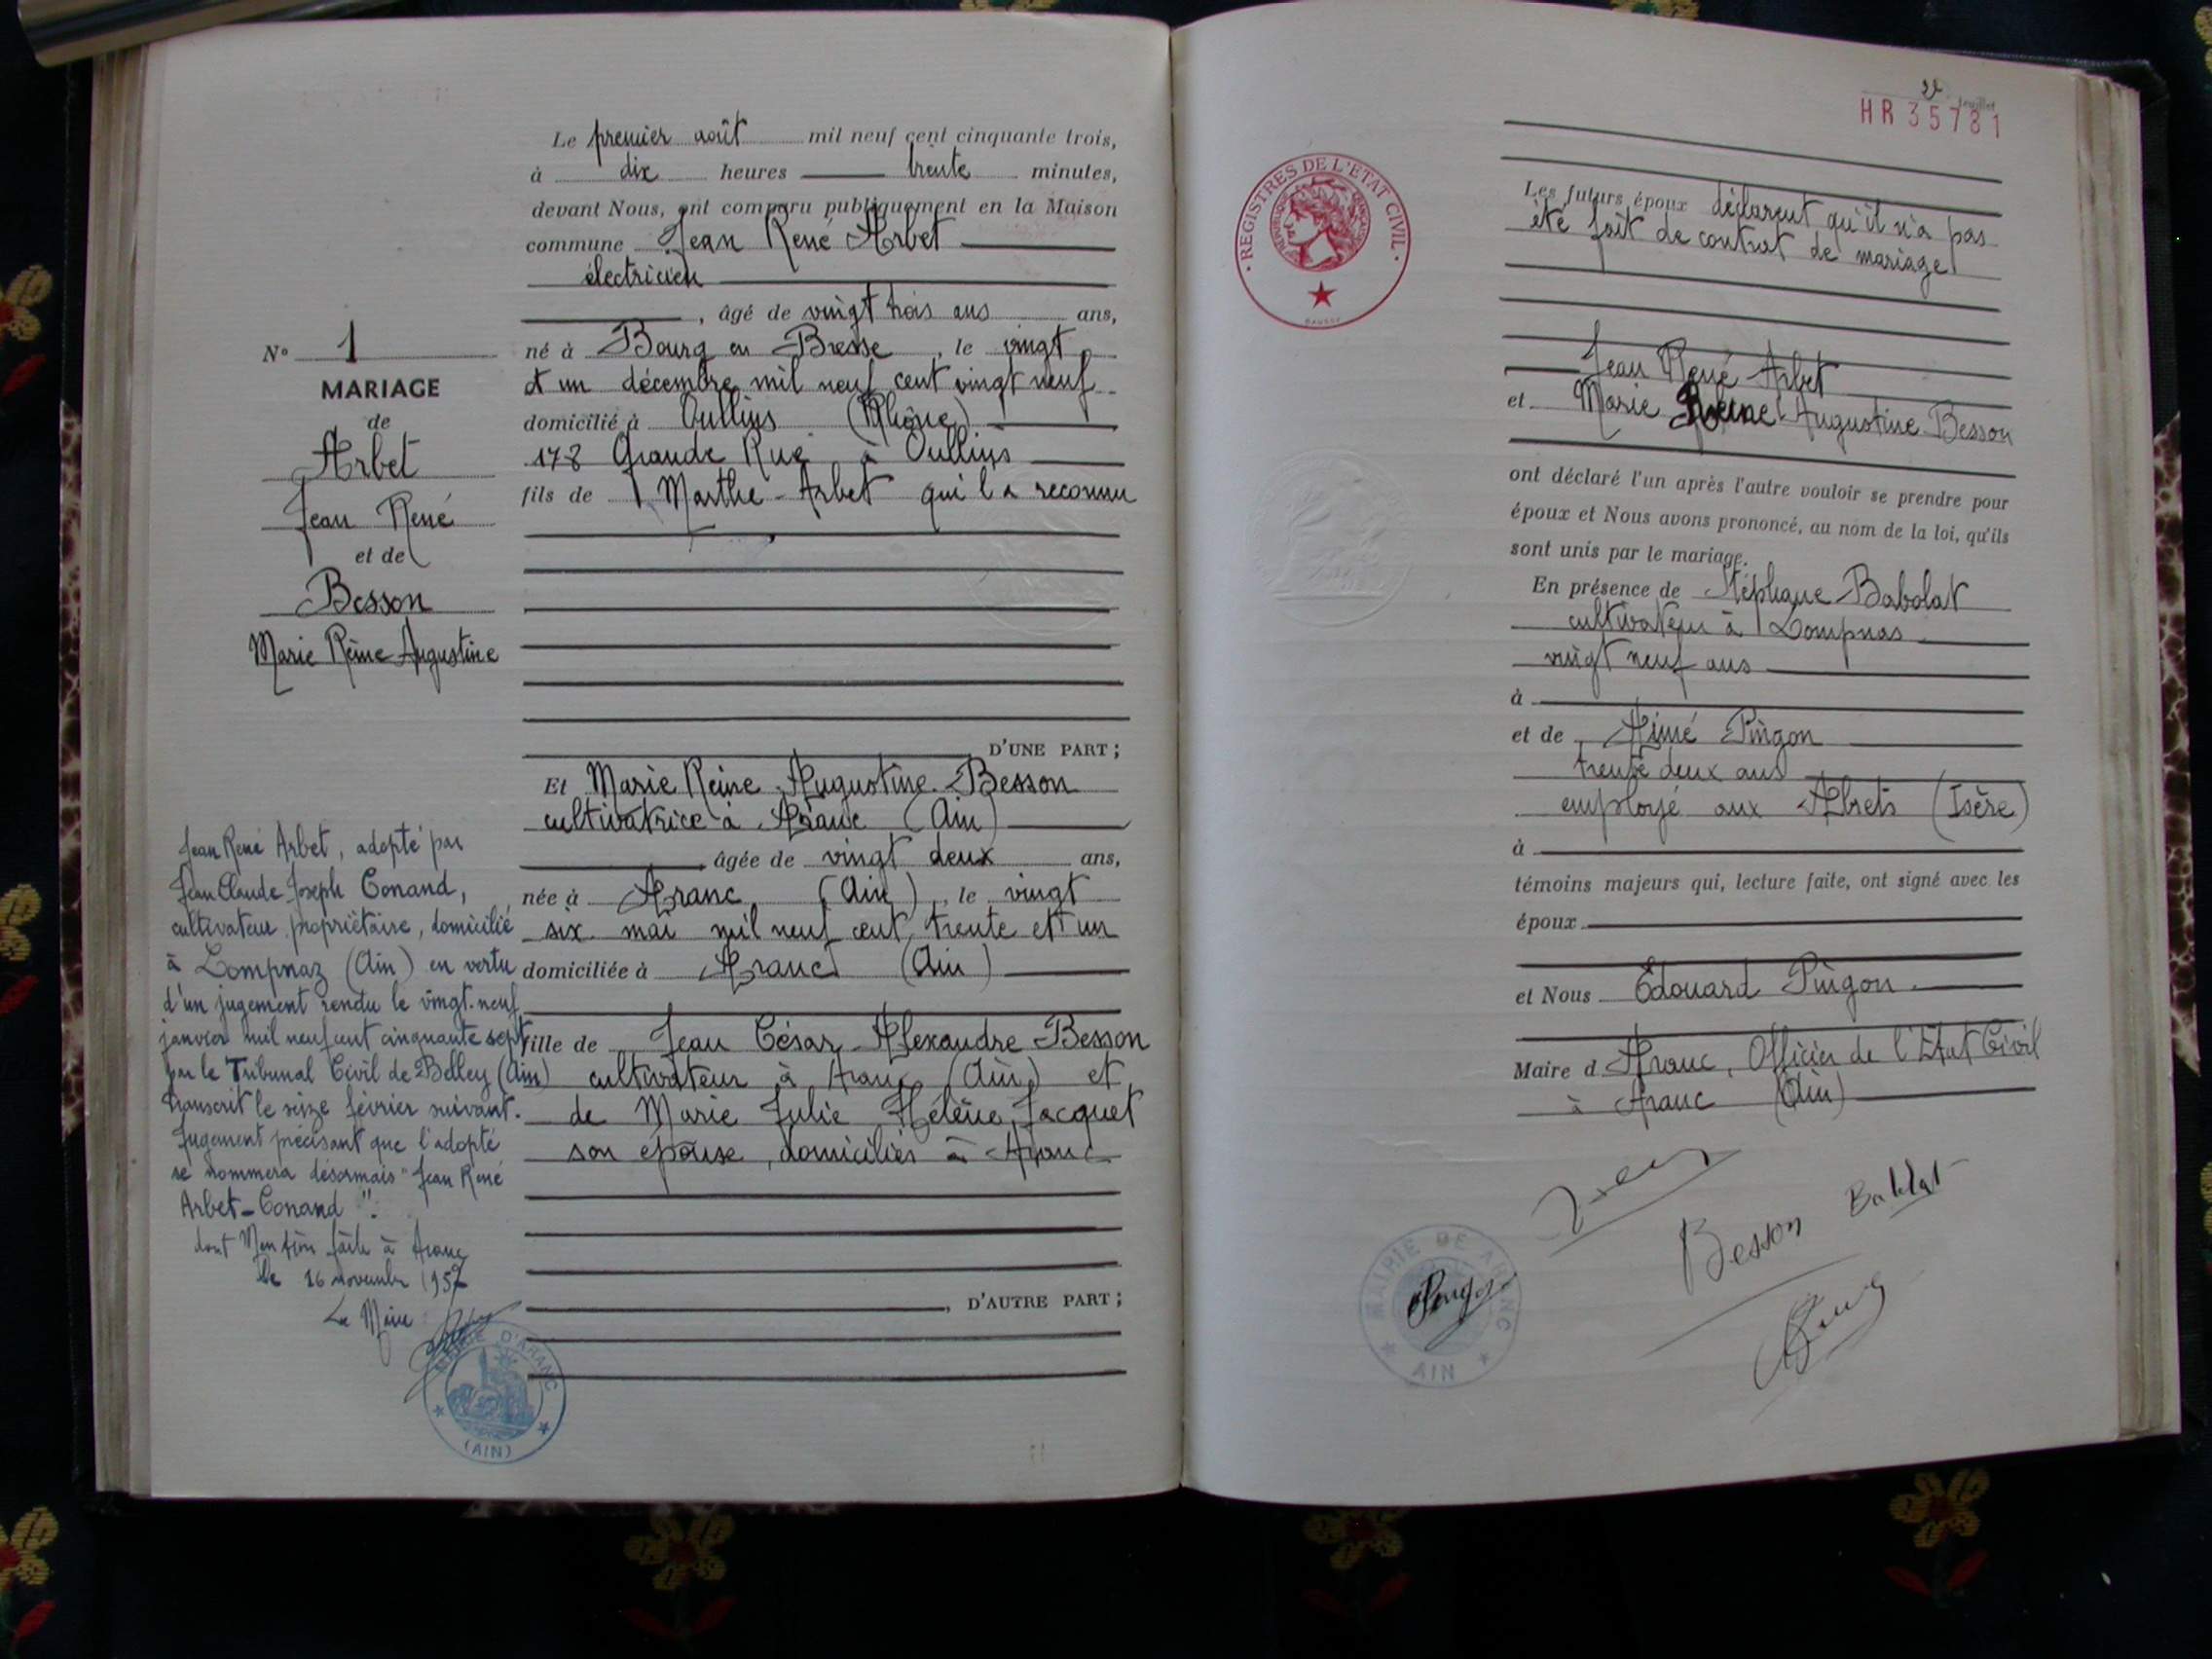 N° 1
MARIAGE
de
Arbet
Jean René
et de
Besson
Marie Reine Augustine
Jean René Arbet, adopté par
Jean Claude Joseph Conand,
cultivateur propriétaire, domicilié
à Lompnaz (Ain) en vertu
d'un jugement rendu le vingt-neuf
janvier mil neuf cent cinquante sept
par le Tribunal Civil de Belley (Ain)
transcrit le seize février suivant.
Jugement précisant que l'adopté
se nommera désormais "Jean René
Arbet-Conand".
dont Mention faite à Aranc
le 16 novembre 1957
Le Maire
MAIRIE D'ARANC
(AIN)
Le premier août mil neuf cent cinquante trois,
à dix heures trente minutes,
devant Nous, ont comparu publiquement en la Maison
commune Jean René Arbet
électricien
, âgé de vingt trois ans ans,
né à Bourg en Bresse, le vingt
et un décembre mil neuf cent vingt neuf
domicilié à Oullins (Rhône)
178 Grande Rue à Oullins
fils de Marthe Arbet qui l'a reconnu
D'UNE PART;
Et Marie Reine Augustine Besson
cultivatrice à Aranc (Ain)
âgée de vingt deux ans,
née à Aranc (Ain), le vingt
six mai mil neuf cent trente et un
domiciliée à Aranc (Ain)
fille de Jean César Alexandre Besson
cultivateur à Aranc (Ain) et
de Marie Julie Hélène Jacquet
son épouse, domiciliés à Aranc
, D'AUTRE PART;
feuillet
HR 35781
REGISTRES DE L'ÉTAT CIVIL
RÉPUBLIQUE FRANÇAISE
Les futurs époux déclarent qu'il n'a pas
été fait de contrat de mariage
Jean René Arbet
et Marie Reine Augustine Besson
ont déclaré l'un après l'autre vouloir se prendre pour
époux et Nous avons prononcé, au nom de la loi, qu'ils
sont unis par le mariage.
En présence de Stéphane Babolat
cultivateur à Lompnas
vingt neuf ans
à
et de Aimé Pingon
trente deux ans
employé aux Abrets (Isère)
à
témoins majeurs qui, lecture faite, ont signé avec les
époux
et Nous Edouard Pingon
Maire d Aranc, Officier de l'Etat Civil
à Aranc (Ain)
Babolat
Besson
Pingon
MAIRIE DE ARANC
AIN